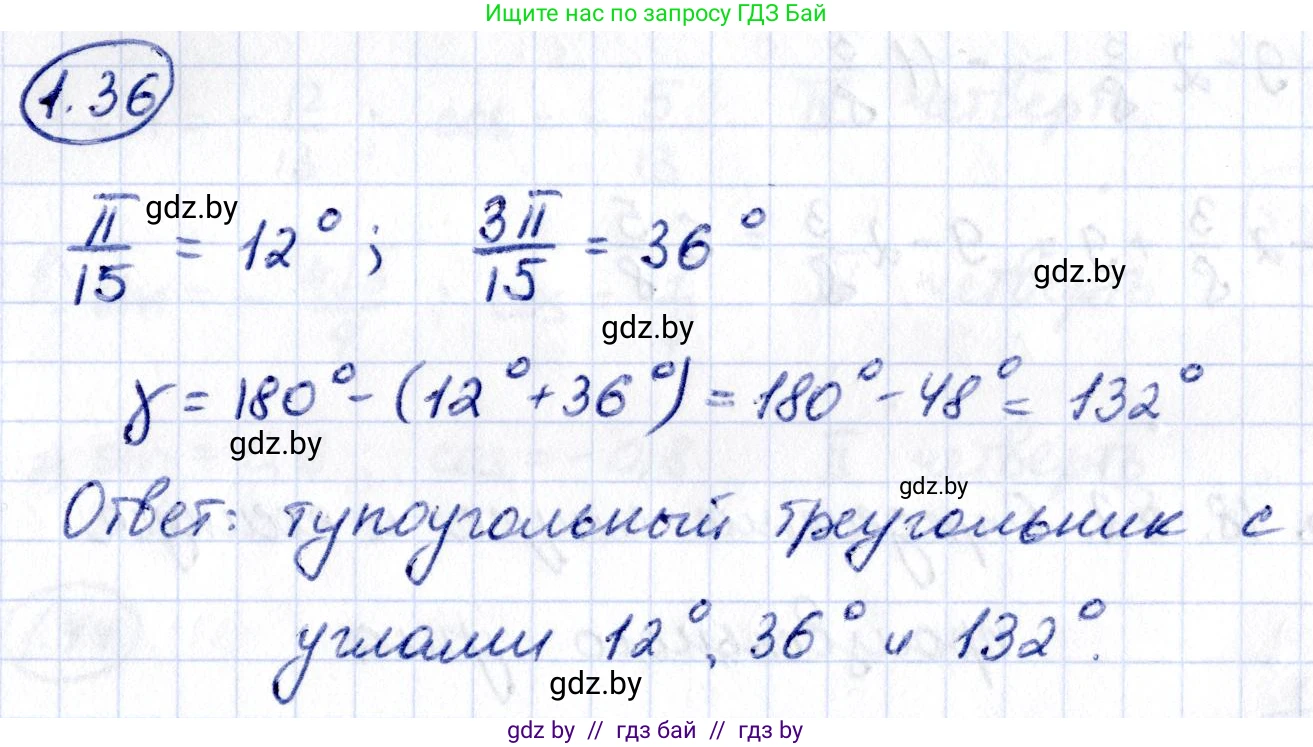 Ищите нас по запросу ГДЗ Бай
1.36
π/15 = 12°; 3π/15 = 36°
gdz.by
gdz.by
gdz.by
γ = 180° - (12° + 36°) = 180° - 48° = 132°
gdz.by
gdz.by
Ответ: тупоугольный треугольник с
углами 12°, 36° и 132°.
gdz.by
gdz by // гдз бай // gdz by